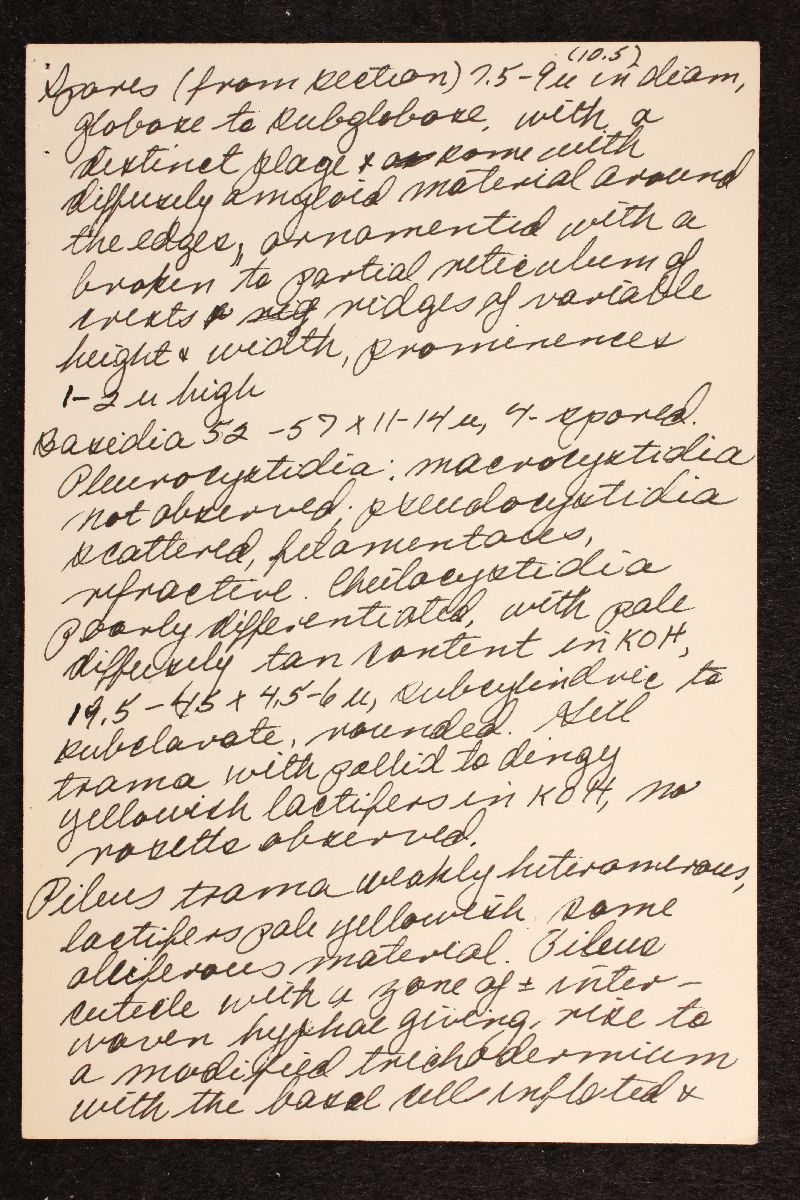 Spores (from section) 7.5-9u (10.5) in diam,
globose to subglobose, with a
distinct plage & some with
diffusely amyloid material around
the edges, ornamented with a
broken to partial reticulum of
crests & ridges of variable
height & width, prominences
1-2 u high
Basidia 52-57 x 11-14 u, 4-spored.
Pleurocystidia: macrocystidia
not observed; pseudocystidia
scattered, filamentous,
refractive. Cheilocystidia
poorly differentiated, with pale
diffusely tan content in KOH,
19.5-45 x 4.5-6 u, subcylindric to
subclavate, rounded. Gill
trama with pallid to dingy
yellowish lactifers in KOH, no
rosetts observed.
Pileus trama weakly heteromerous,
lactifers pale yellowish some
oleiferous material. Pileus
cuticle with a zone of ± inter-
woven hyphae giving rise to
a modified trichodermium
with the basal cell inflated &